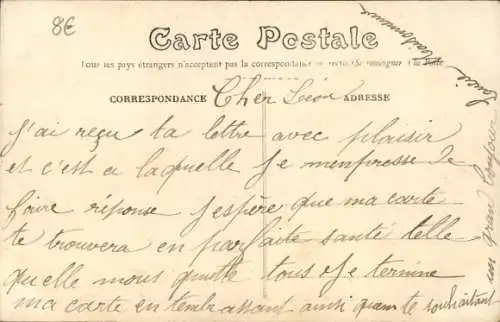 8€
Carte Postale
Tous les pays étrangers n'acceptent pas la correspondance au recto (Se renseigner à la Poste)
CORRESPONDANCE
Cher Léon
ADRESSE
J'ai reçu ta lettre avec plaisir
et c'est a laquelle Je m'enpresse de
foire réponse J'espère que ma carte
te trouvera en parfaite santé telle
quelle nous quitte tous Je termine
ma carte en tembrassant ainsi quen te souhaitant
un gran bonjour
Louise